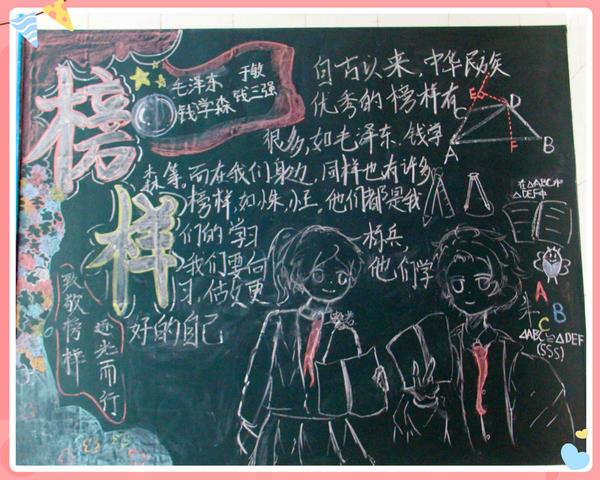 榜样
毛泽东 于敏
钱学森 钱三强
自古以来,中华民族
优秀的榜样有
很多,如毛泽东、钱学
森等。而在我们身边,同样也有许多
榜样,如小朱,小王。他们都是我
们的学习 标兵,
我们要向 他们学
习,做更
好的自己
致敬榜样
逐光而行
E
C
D
A
F
B
在△ABC中
△DEF中
A
B
C
△ABC≌△DEF
(SSS)